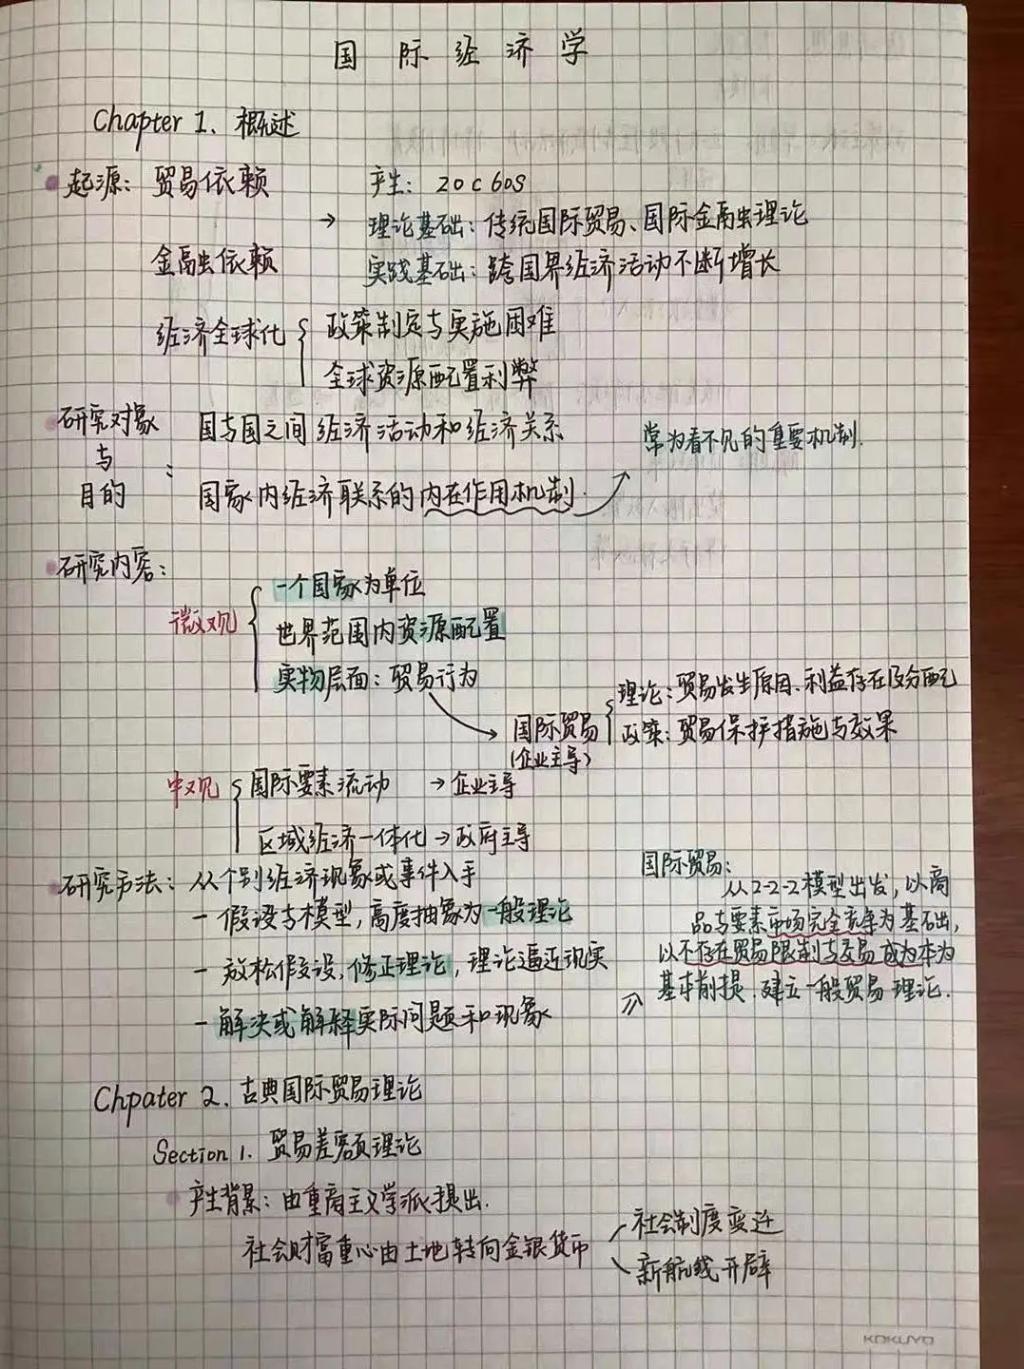 国际经济学
Chapter 1. 概述
起源：贸易依赖
产生：20c 60s
→ 理论基础：传统国际贸易、国际金融理论
金融依赖
实践基础：跨国界经济活动不断增长
经济全球化 { 政策制定与实施困难
全球资源配置利弊
研究对象与目的：
国与国之间经济活动和经济关系
常为看不见的重要机制.
国家内经济联系的内在作用机制.
研究内容：
微观 { 一个国家为单位
世界范围内资源配置
实物层面：贸易行为
→ 国际贸易 (企业主导) { 理论：贸易发生原因、利益存在及分配
政策：贸易保护措施与效果
中观 { 国际要素流动 → 企业主导
区域经济一体化 → 政府主导
研究方法：从个别经济现象或事件入手
- 假设与模型，高度抽象为一般理论
- 放松假设，修正理论，理论逼近现实
- 解决或解释实际问题和现象
国际贸易：
从2-2-2模型出发，以商
品与要素市场完全竞争为基础，
以不存在贸易限制与交易成为本为
基本前提.建立一般贸易理论.
Chpater 2. 古典国际贸易理论
Section 1. 贸易差额理论
产生背景：由重商主义学派提出.
社会财富重心由土地转向金银货币
社会制度变迁
新航线开辟
KOKUYO